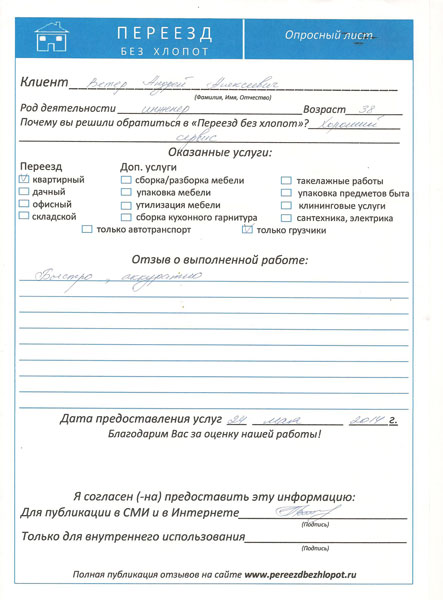 ПЕРЕЕЗД
БЕЗ ХЛОПОТ
Опросный лист
Клиент Ветер Андрей Алексеевич
(Фамилия, Имя, Отчество)
Род деятельности инженер Возраст 38
Почему вы решили обратиться в «Переезд без хлопот»? Хороший
сервис
Оказанные услуги:
Переезд Доп. услуги
квартирный сборка/разборка мебели такелажные работы
дачный упаковка мебели упаковка предметов быта
офисный утилизация мебели клининговые услуги
складской сборка кухонного гарнитура сантехника, электрика
только автотранспорт только грузчики
Отзыв о выполненной работе:
Быстро, аккуратно
Дата предоставления услуг 24 мая 2014 г.
Благодарим Вас за оценку нашей работы!
Я согласен (-на) предоставить эту информацию:
Для публикации в СМИ и в Интернете
(Подпись)
Только для внутреннего использования
(Подпись)
Полная публикация отзывов на сайте www.pereezdbezhlopot.ru